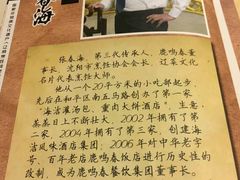 春海
张春海，第三代传承人，鹿鸣春董
事长，沈阳市烹饪协会会长，辽菜文化
名片代表烹饪大师。
他从一个20平方米的小吃部起步，
先后在和平区南五马路创办了第一家
“海洁灌汤包，熏肉大饼酒店”，生意
蒸蒸日上不断壮大，2002年拥有了第
二家，2004年拥有了第三家，创建海
洁风味酒店集团；2006年对中华老字
号、百年老店鹿鸣春饭店进行历史性的
改制，成为鹿鸣春餐饮集团董事长。